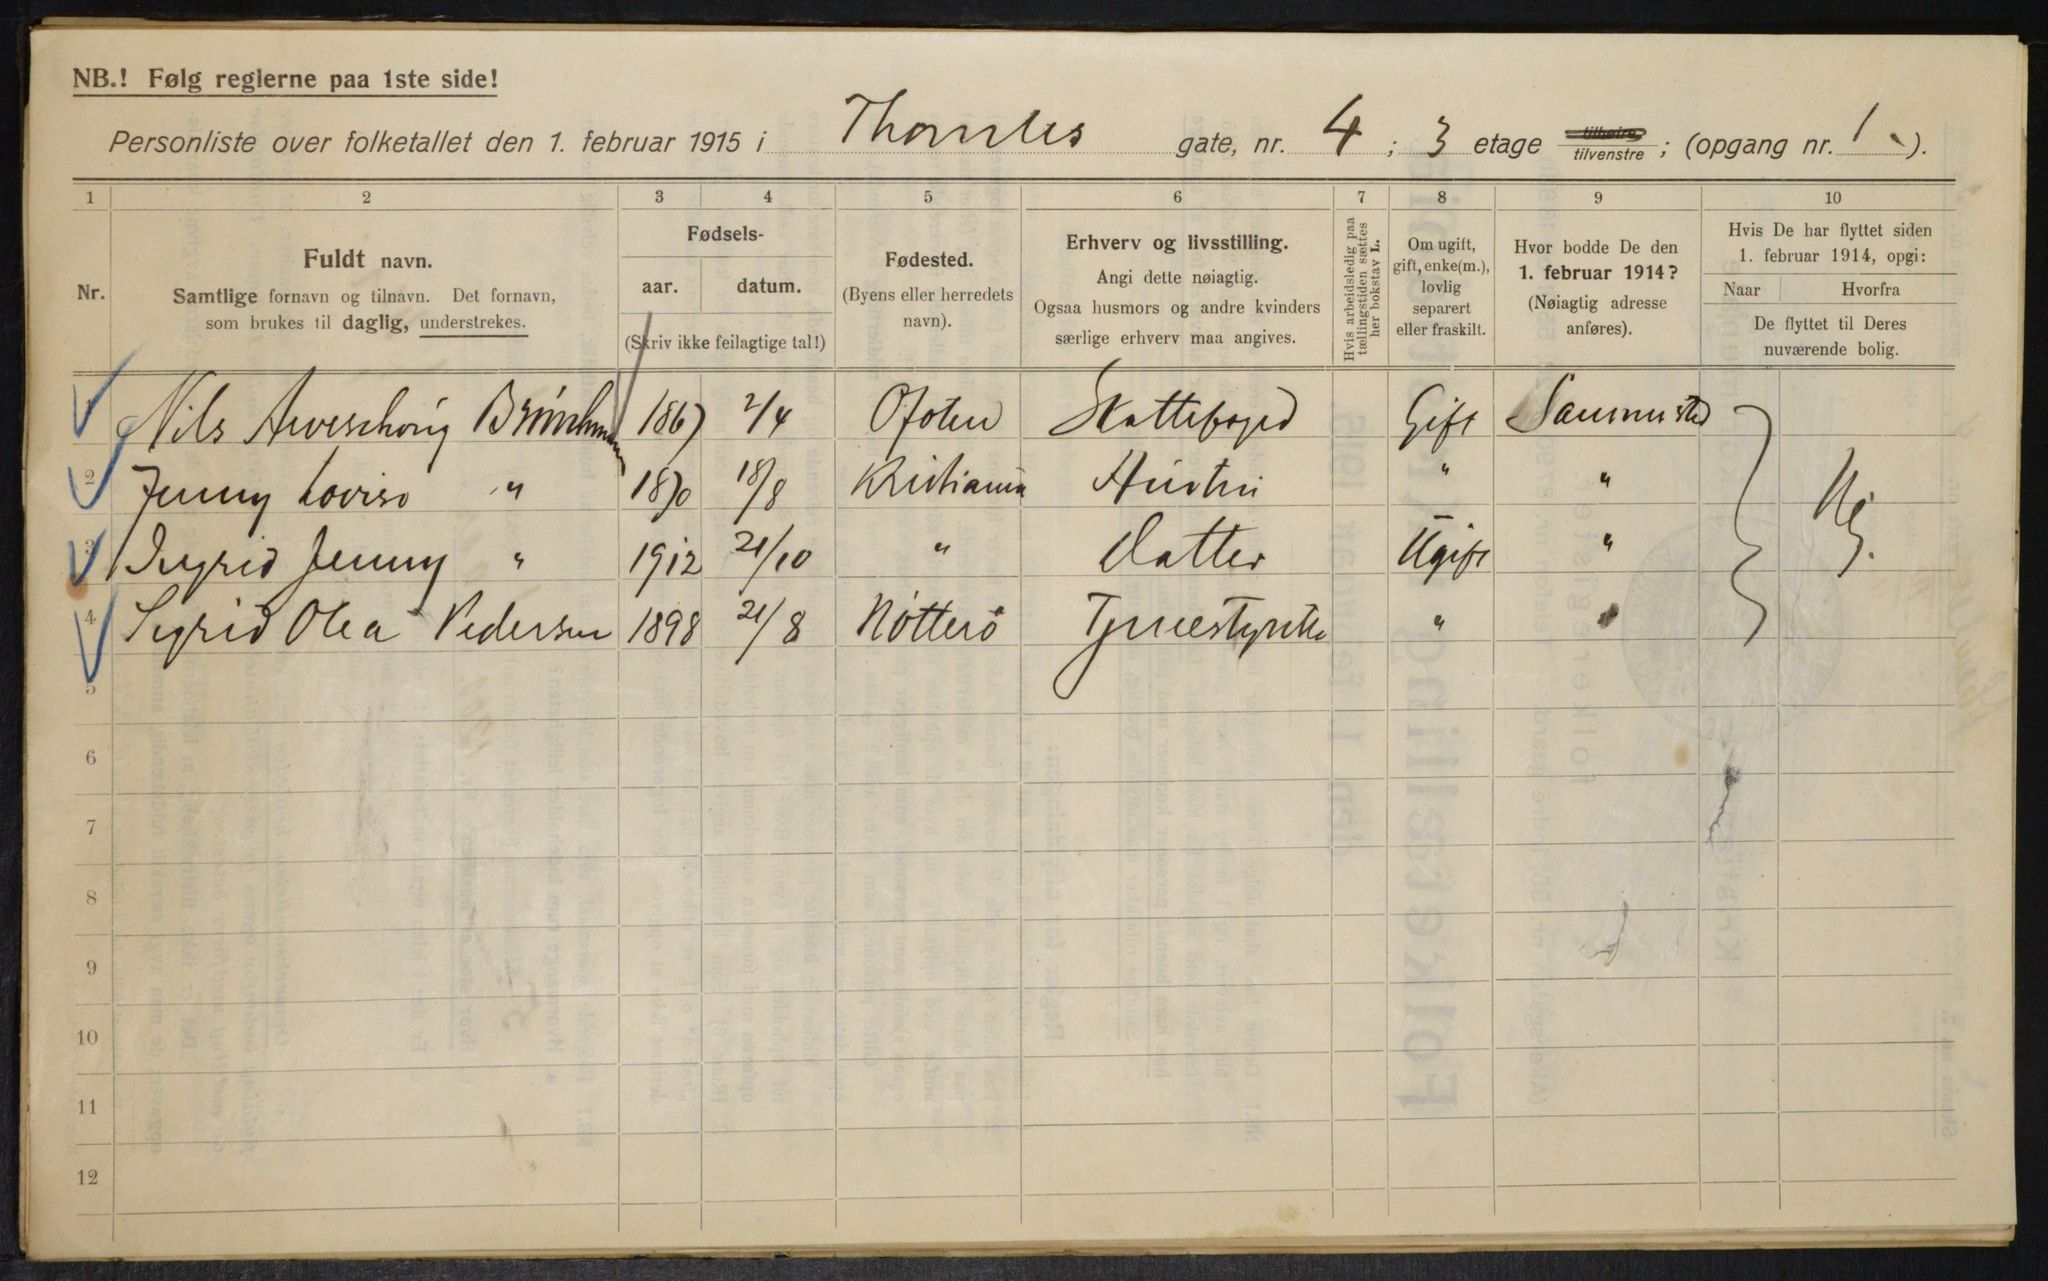 NB.! Følg reglerne paa 1ste side!
Personliste over folketallet den 1. februar 1915 i Thomles gate, nr. 4 ; 3 etage tilhøire tilvenstre ; (opgang nr. 1 ).
1 2 3 4 5 6 7 8 9 10
Nr.
Fuldt navn.
Samtlige fornavn og tilnavn. Det fornavn,
som brukes til daglig, understrekes.
Fødsels-
aar. datum.
(Skriv ikke feilagtige tal!)
Fødested.
(Byens eller herredets
navn).
Erhverv og livsstilling.
Angi dette nøiagtig.
Ogsaa husmors og andre kvinders
særlige erhverv maa angives.
Hvis arbeidsledig paa
tællingstiden sættes
her bokstav L.
Om ugift,
gift, enke(m.),
lovlig
separert
eller fraskilt.
Hvor bodde De den
1. februar 1914?
(Nøiagtig adresse
anføres).
Hvis De har flyttet siden
1. februar 1914, opgi:
Naar Hvorfra
De flyttet til Deres
nuværende bolig.
1 Nils 1867 2/4 Ofoten Skattefoged Gift Sammested
2 Jenny Lovise " 1870 18/8 Kristiania Hustru " "
3 Ingrid Jenny " 1912 21/10 " Datter Ugift "
4 Sigrid Olea Pedersen 1898 21/8 Nötterö "
Nej.
5
6
7
8
9
10
11
12